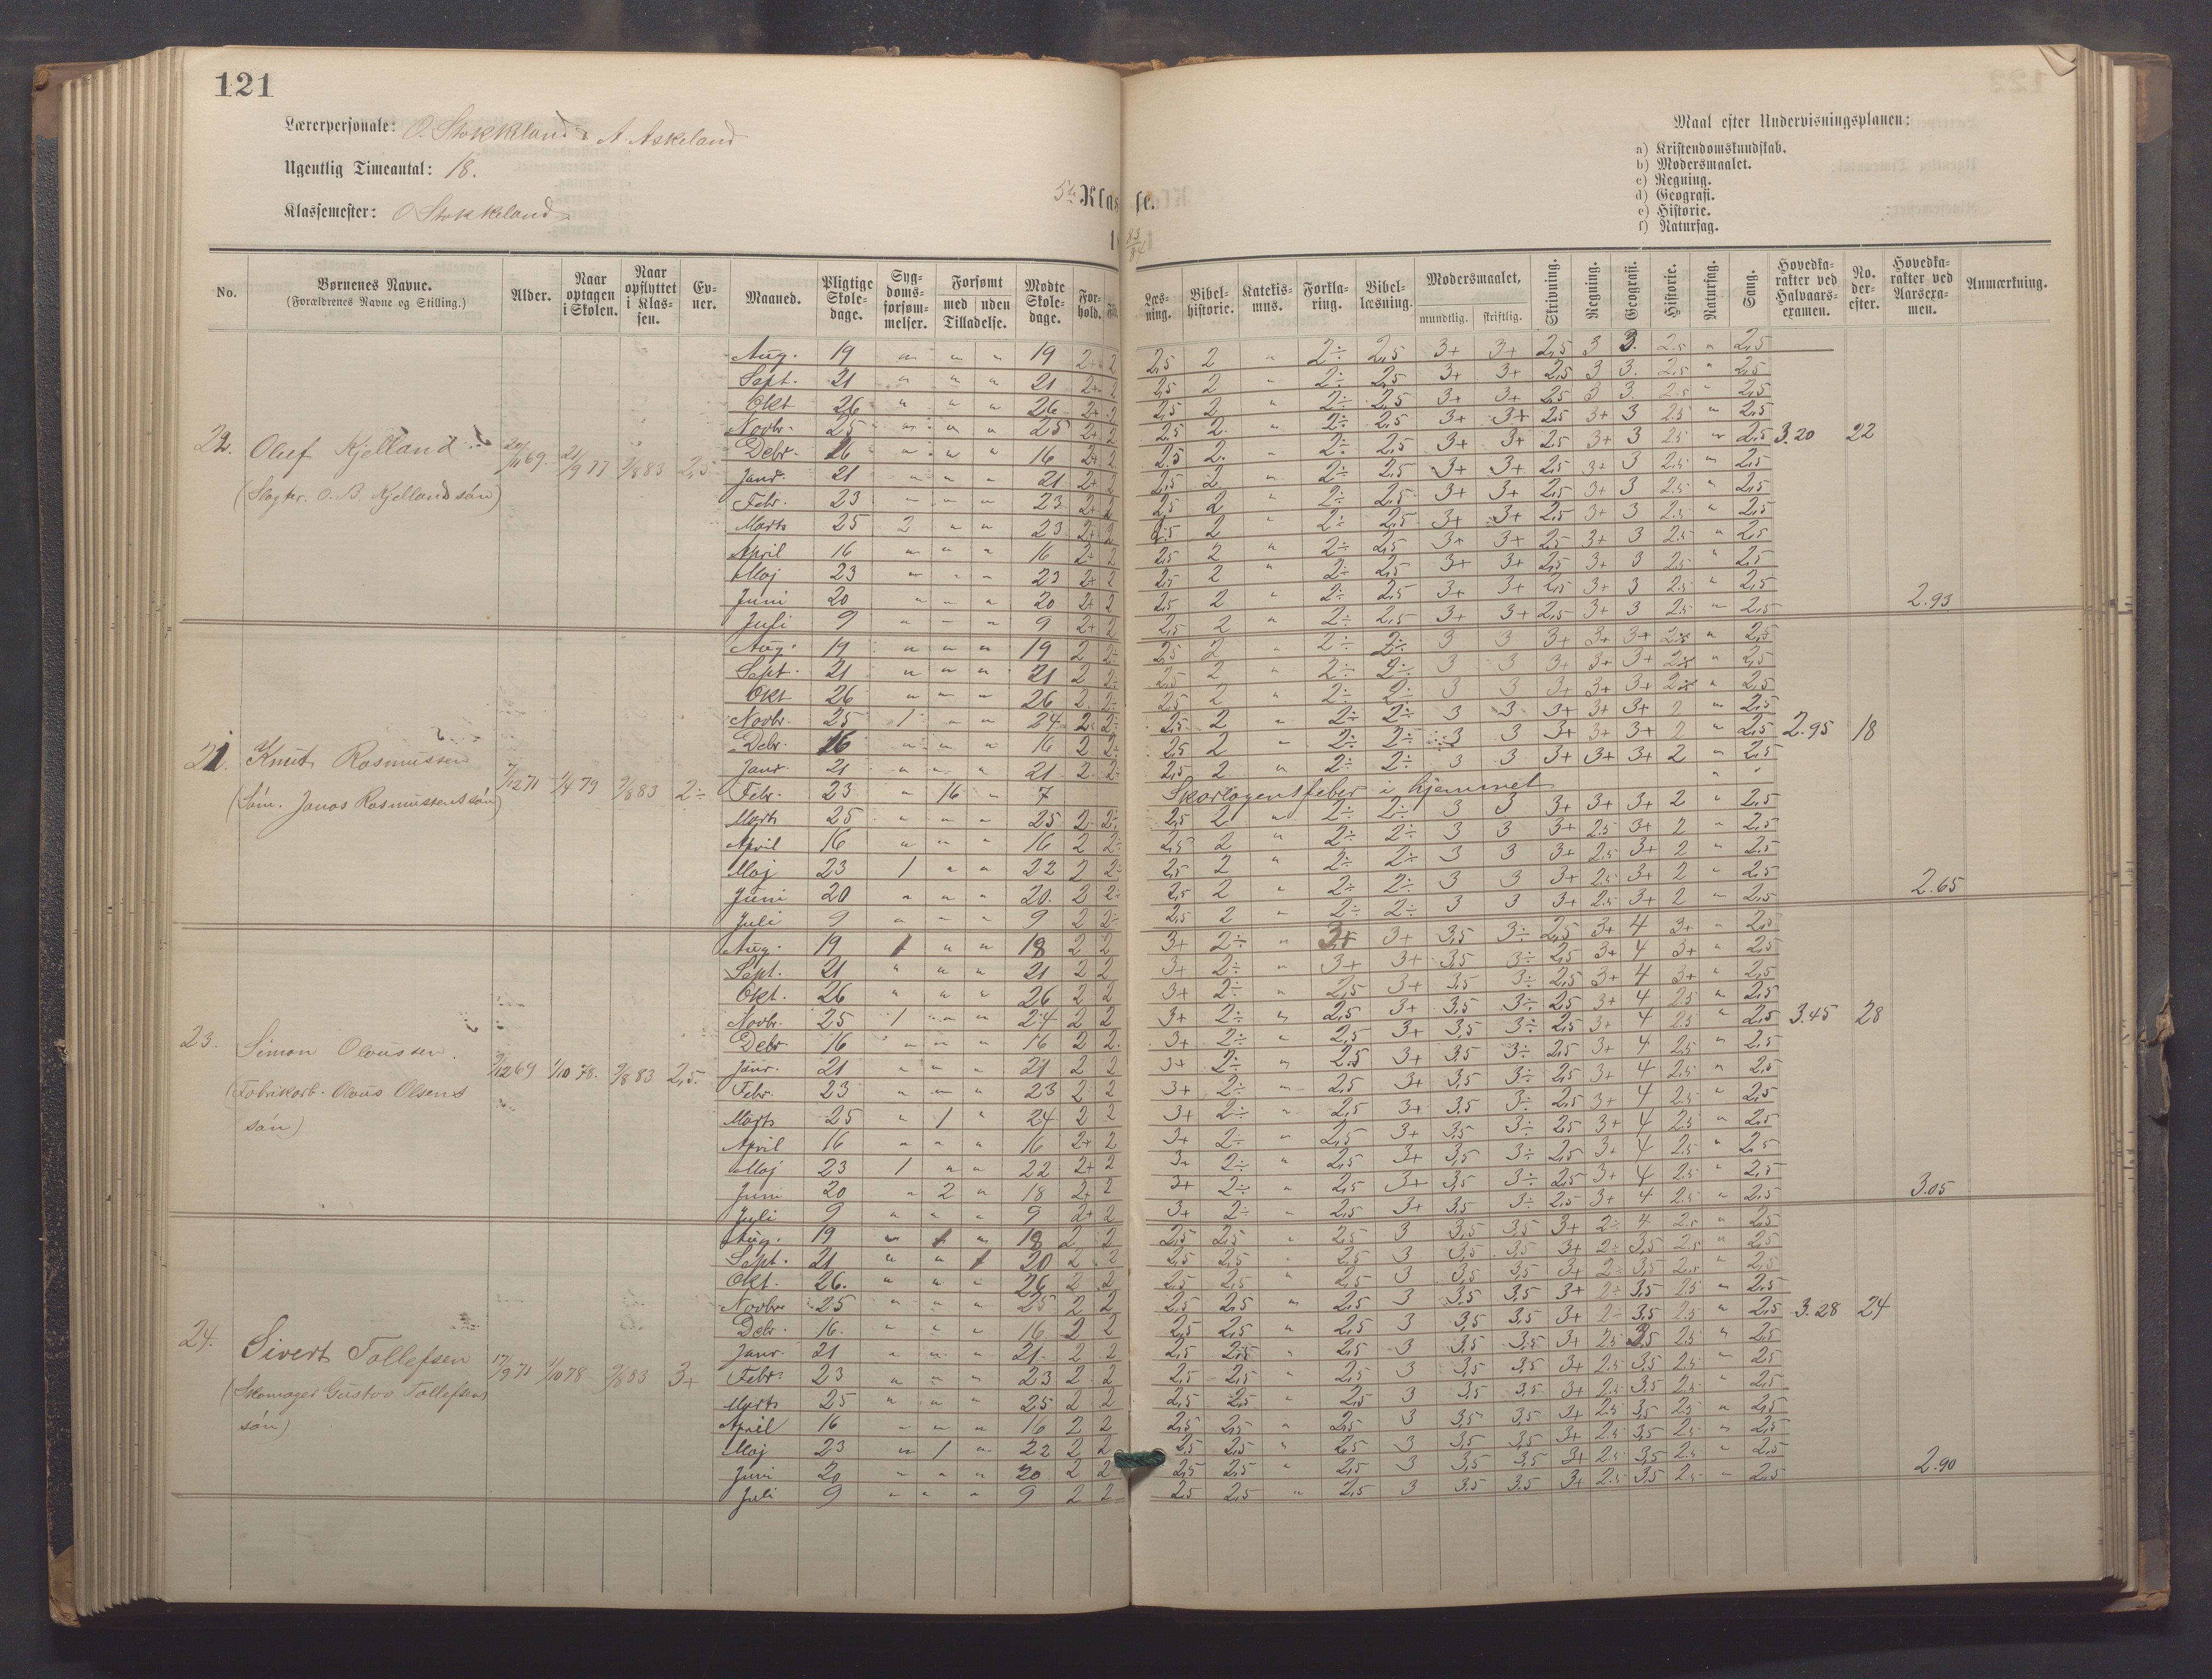 121
Lærerpersonale: O. Stokkeland & A. Askeland
Ugentlig Timeantal: 18.
Klassemester: O. Stokkeland
5te Klasse.
18 83/84
Maal efter Undervisningsplanen:
a) Kristendomskundskab.
b) Modersmaalet.
c) Regning.
d) Geografi.
e) Historie.
f) Naturfag.
No. | Børnenes Navne. (Forældrenes Navne og Stilling.) | Alder. | Naar optagen i Skolen. | Naar opflyttet i Klassen. | Evner. | Maaned. | Pligtige Skoledage. | Sygdomsforsømmelser. | Forsømt med Tilladelse. | uden Tilladelse. | Mødte Skoledage. | Forhold. | Læsning. | Bibelhistorie. | Katekismus. | Forklaring. | Bibellæsning. | Modersmaalet, mundtlig. | skriftlig. | Skrivning. | Regning. | Geografi. | Historie. | Naturfag. | Sang. | Hovedkarakter ved Halvaarsexamen. | No. derefter. | Hovedkarakter ved Aarsexamen. | Anmærkning.
22. Oluf Kjelland
(Slagter. O. B. Kjellands søn)
9/8 83 2,5
Aug. 19 " " " 19 2+ 2 2,5 2 " 2÷ 2,5 3+ 3+ 2,5 3 3. 2.5 " 2,5
Sept. 21 " " " 21 2+ 2 2,5 2 " 2÷ 2,5 3+ 3+ 2,5 3 3. 2,5 " 2,5
Okt 26 " " " 26 2+ 2 2,5 2 " 2÷ 2,5 3+ 3+ 2,5 3 3. 2.5 " 2,5
Novbr. 25 " " " 25 2+ 2 2,5 2. " 2÷ 2,5 3+ 3+ 2,5 3+ 3 2.5 " 2,5
Debr. 16 " " " 16 2+ 2 2,5 2. " 2÷ 2,5 3+ 3+ 2,5 3+ 3 2.5 " 2,5 3.20 22
Janr. 21 " " " 21 2+ 2 2,5 2 " 2÷ 2,5 3+ 3+ 2,5 3+ 3 2.5 " 2,5
Febr. 23 " " " 23 2+ 2 2,5 2 " 2÷ 2,5 3+ 3+ 2,5 3+ 3 2.5 " 2,5
Marts 25 2 " " 23 2+ 2 2,5 2 " 2÷ 2,5 3+ 3+ 2,5 3+ 3 2.5 " 2,5
April 16 " " " 16 2+ 2 2,5 2 " 2÷ 2,5 3+ 3+ 2,5 3+ 3 2.5 " 2,5
Maj 23 " " " 23 2+ 2 2,5 2 " 2÷ 2,5 3+ 3+ 2,5 3+ 3 2.5 " 2,5
Juni 20 " " " 20 2+ 2 2,5 2 " 2÷ 2,5 3+ 3+ 2,5 3+ 3 2.5 " 2,5 2.93
Juli 9 " " " 9 2+ 2 2,5 2 " 2÷ 2,5 3+ 3+ 2,5 3+ 3 2.5 " 2,5
21. Knut Rasmussen
(Søm. Jonas Rasmussens søn)
1/4 79 9/8 83 2÷
Aug. 19 " " " 19 2 2÷ 2,5 2 " 2÷ 2÷ 3 3 3+ 3+ 3+ " 2,5
Sept. 21 " " " 21 2 2÷ 2,5 2 " 2÷ 2÷ 3 3 3+ 3+ 3+ " 2,5
Okt 26 " " " 26 2 2÷ 2,5 2 " 2÷ 2÷ 3 3 3+ 3+ 3+ " 2,5
Novbr. 25 1 " " 24 2 2÷ 2,5 2 " 2÷ 2÷ 3 3 3+ 3+ 3+ 2 " 2,5
Debr. 16 " " " 16 2 2÷ 2,5 2 " 2÷ 2÷ 3 3 3+ 3+ 3+ 2 " 2,5 2.95 18
Janr. 21 " " " 21 2 2÷ 2,5 2 " 2÷ 2÷ 3 3 3+ 3+ 3+ 2 " 2,5
Febr. 23 " 16 " 7 Skarlagensfeber i hjemmet " "
Marts 25 " " " 25 2 2÷ 2,5 2 " 2÷ 2÷ 3 3 3+ 3+ 3+ 2 " 2,5
April 16 " " " 16 2 2÷ 2,5 2 " 2÷ 2÷ 3 3 3+ 2.5 3+ 2 " 2,5
Maj 23 1 " " 22 2 2÷ 2,5 2 " 2÷ 2÷ 3 3 3+ 2.5 3+ 2 " 2,5
Juni 20 " " " 20. 2 2÷ 2,5 2 " 2÷ 2÷ 3 3 3+ 2.5 3+ 2 " 2,5 2.65
Juli 9 " " " 9 2 2÷ 2,5 2 " 2÷ 2÷ 3 3 3+ 2.5 3+ 2 " 2,5
23. Simon Olaussen.
(Fabrikarb. Olaus Olsens
søn)
1/10 78. 9/8 83 2,5.
Aug. 19 1 " " 18 2 2 3+ 2÷ " 3+ 3+ 3,5 3÷ 2,5 3+ 4 3+ " 2,5
Sept. 21 " " " 21 2 2 3+ 2÷ " 3+ 3+ 3,5 3÷ 2,5 3+ 4 3+ " 2,5
Okt. 26 " " " 26 2 2 3+ 2÷ " 2,5 3+ 3,5 3÷ 2,5 3+ 4 3+ " 2,5
Novbr. 25 1 " " 24 2 2 3+ 2÷ " 2,5 3+ 3,5 3÷ 2,5 3+ 4 2.5 " 2,5
Debr 16 " " " 16 2 2. 3+ 2÷ " 2,5 3+ 3,5 3÷ 2,5 3+ 4 2.5 " 2,5 3.45 28
Janr. 21 " " " 21 2 2 3+ 2÷ " 2,5 3+ 3,5 3÷ 2,5 3+ 4 2.5 " 2,5
Febr. 23 " " " 23 2 2 3+ 2÷ " 2,5 3+ 3,5 3÷ 2,5 3+ 4 2.5 " 2,5
Marts 25 " 1 " 24 2 2 3+ 2÷ " 2,5 3+ 3,5 3÷ 2,5 3+ 4 2.5 " 2,5
April 16 " " " 16 2+ 2 3+ 2÷ " 2,5 3+ 3,5 3÷ 2,5 3+ 4 2.5 " 2,5
Maj 23 1 " " 22 2+ 2 3+ 2÷ " 2,5 3+ 3,5 3÷ 2,5 3+ 4 2.5 " 2,5
Juni 20 " 2 " 18 2+ 2 3+ 2÷ " 2,5 3+ 3,5 3÷ 2,5 3+ 4 2.5 " 2,5 3.05
Juli 9 " " " 9 2+ 2 3+ 2÷ " 2,5 3+ 3,5 3÷ 2,5 3+ 4 2.5 " 2,5
24. Sivert Tollefsen
(Skomager Gustav Tollefsens
søn)
17/9 71 1/10 78 9/8 83 3+
Aug. 19 " 1 " 18 2 2 2,5 2,5 " 2,5 3 3,5 3,5 3+ 2÷ 4 2.5 " 2,5
Sept. 21 " " 1 20 2 2 2,5 2,5 " 2,5 3 3,5 3,5 3+ 2÷ 3,5 2.5 " 2,5
Okt. 26. " " " 26 2 2 2,5 2,5 " 2,5 3 3,5 3,5 3+ 2÷ 3,5 2.5 " 2,5
Novbr 25 " " " 25 2 2 2,5 2,5 " 2,5 3 3,5 3,5 3+ 2÷ 3,5 2.5 " 2,5
Debr. 16. " " " 16. 2 2 2,5 2,5 " 2,5 3 3,5 3,5 3+ 2÷ 3,5 2.5 " 2,5 3.28 24
Janr. 21 " " " 21 2 2 2,5 2,5 " 2,5 3 3,5 3,5 3+ 2.5 3,5 2.5 " 2,5
Febr. 23 " " " 23 2 2 2,5 2,5 " 2,5 3 3,5 3,5 3+ 2.5 3,5 2.5 " 2,5
Marts 25 " " " 25 2 2 2,5 2,5 " 2,5 3 3,5 3,5 3+ 2.5 3,5 2.5 " 2,5
April 16 " " " 16 2 2 2,5 2,5 " 2,5 3 3,5 3,5 3+ 2.5 3,5 2.5 " 2,5
Maj 23 " 1 " 22 2 2 2,5 2,5 " 2,5 3 3,5 3,5 3+ 2.5 3,5 2.5 " 2,5
Juni 20 " " " 20 2 2 2,5 2,5 " 2,5 3 3,5 3,5 3+ 2.5 3,5 2.5 " 2,5 2.90
Juli 9 " " " 9 2 2 2,5 2,5 " 2,5 3 3,5 3,5 3+ 2.5 3,5 2.5 " 2,5